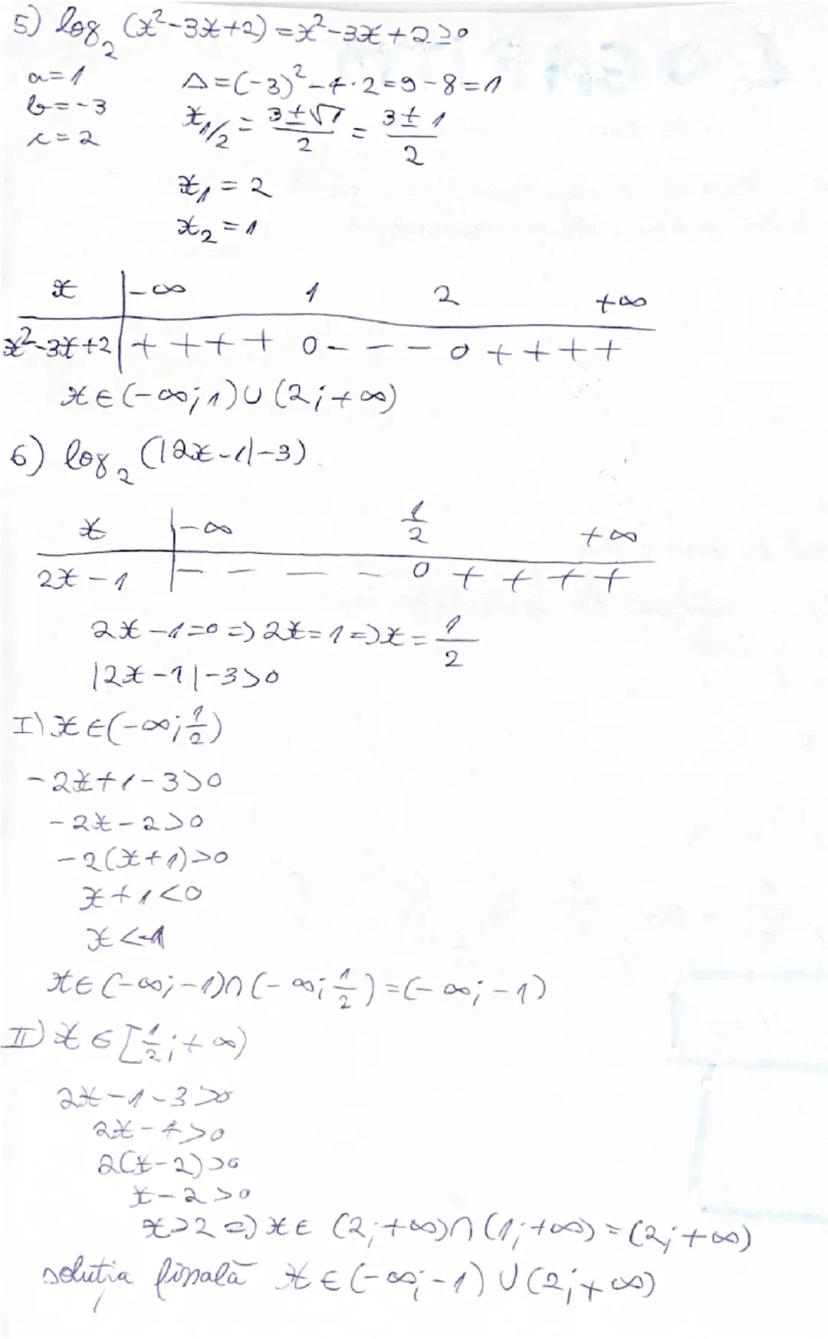 5) log₂ (x²-3x+2) = x²-3x+2 > 0
a=1 Δ=(-3)²-4·2=9-8=1
b=-3 x₁/₂ = (3±√1)/2 = (3±1)/2
c=2
x₁ = 2
x₂ = 1
x | -∞ 1 2 +∞
x²-3x+2 | + + + + 0 - - - 0 + + + +
x∈(-∞;1)∪(2;+∞)
6) log₂ (|2x-1|-3)
x | -∞ 1/2 +∞
2x-1 | - - - - 0 + + + +
2x-1=0 => 2x=1 => x = 1/2
|2x-1|-3>0
I) x∈(-∞;1/2)
-2x+1-3>0
-2x-2>0
-2(x+1)>0
x+1<0
x<-1
x∈(-∞;-1)∩(-∞;1/2)=(-∞;-1)
II) x∈[1/2;+∞)
2x-1-3>0
2x-4>0
2(x-2)>0
x-2>0
x>2 => x∈ (2;+∞)∩(1;+∞)=(2;+∞)
soluția finală x∈(-∞;-1)∪(2;+∞)